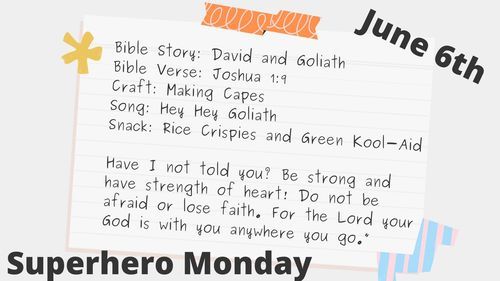 June 6th
Bible Story: David and Goliath
Bible Verse: Joshua 1:9
Craft: Making Capes
Song: Hey Hey Goliath
Snack: Rice Crispies and Green Kool-Aid
Have I not told you? Be strong and
have strength of heart! Do not be
afraid or lose faith. For the Lord your
God is with you anywhere you go."
Superhero Monday